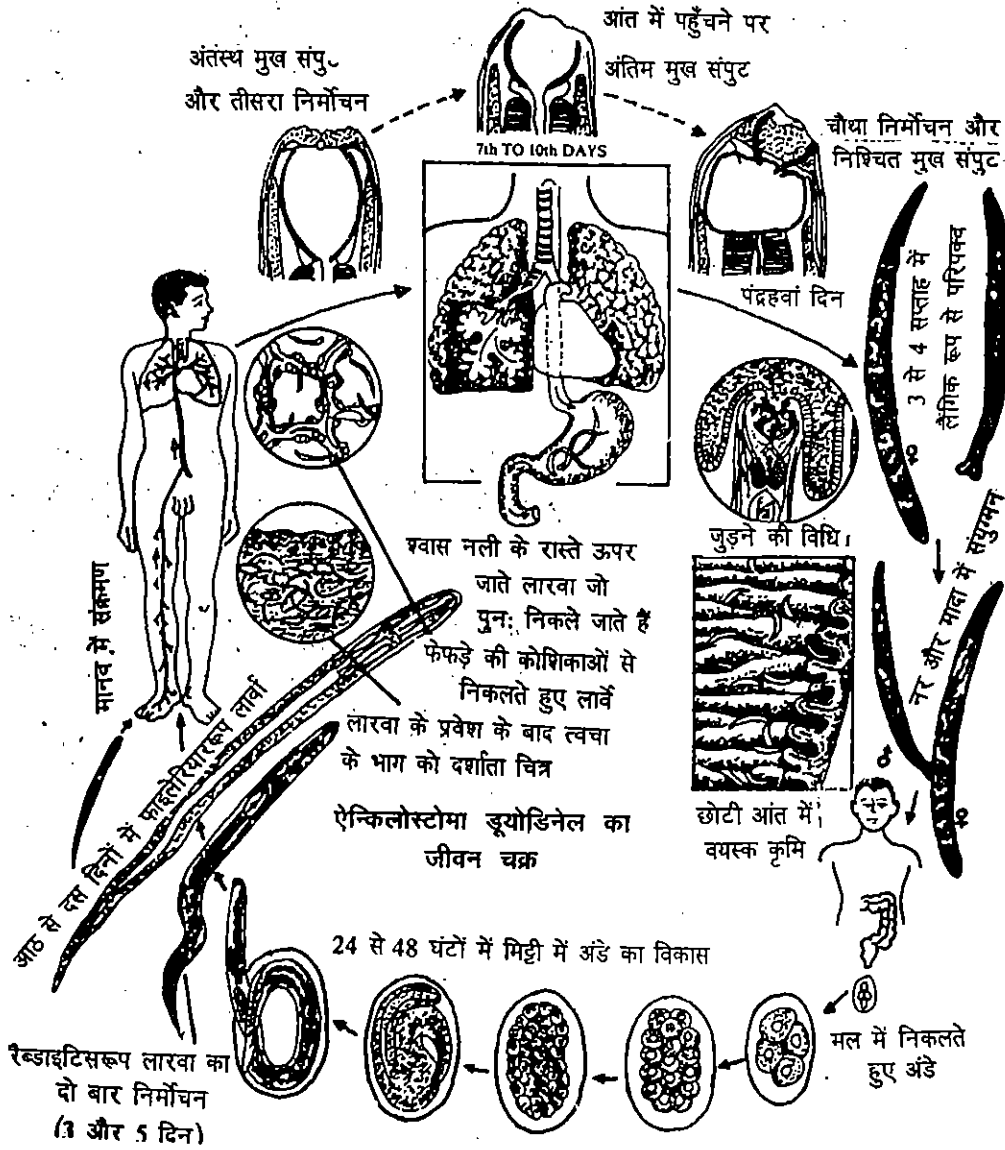 अंतस्थ मुख संपु
और तीसरा निर्मोचन
आंत में पहुँचने पर
अंतिम मुख संपुट
7th TO 10th DAYS
चौथा निर्मोचन और
निश्चित मुख संपुट
पंद्रहवां दिन
3 से 4 सप्ताह में
लैंगिक रूप से परिपक्व
♀
जुड़ने की विधि।
नर और मादा में संयुग्मन
♂
♀
मानव में संक्रमण
श्वास नली के रास्ते ऊपर
जाते लारवा जो
पुनः निकले जाते हैं
फेफड़े की कोशिकाओं से
निकलते हुए लार्वे
लारवा के प्रवेश के बाद त्वचा
के भाग को दर्शाता चित्र
ऐन्किलोस्टोमा डूयोडिनेल का
जीवन चक्र
छोटी आंत में
वयस्क कृमि
आठ से दस दिनों में फाइलेरियारूप लार्वा
24 से 48 घंटों में मिट्टी में अंडे का विकास
मल में निकलते
हुए अंडे
रैब्डाइटिसरूप लारवा का
दो बार निर्मोचन
(3 और 5 दिन)